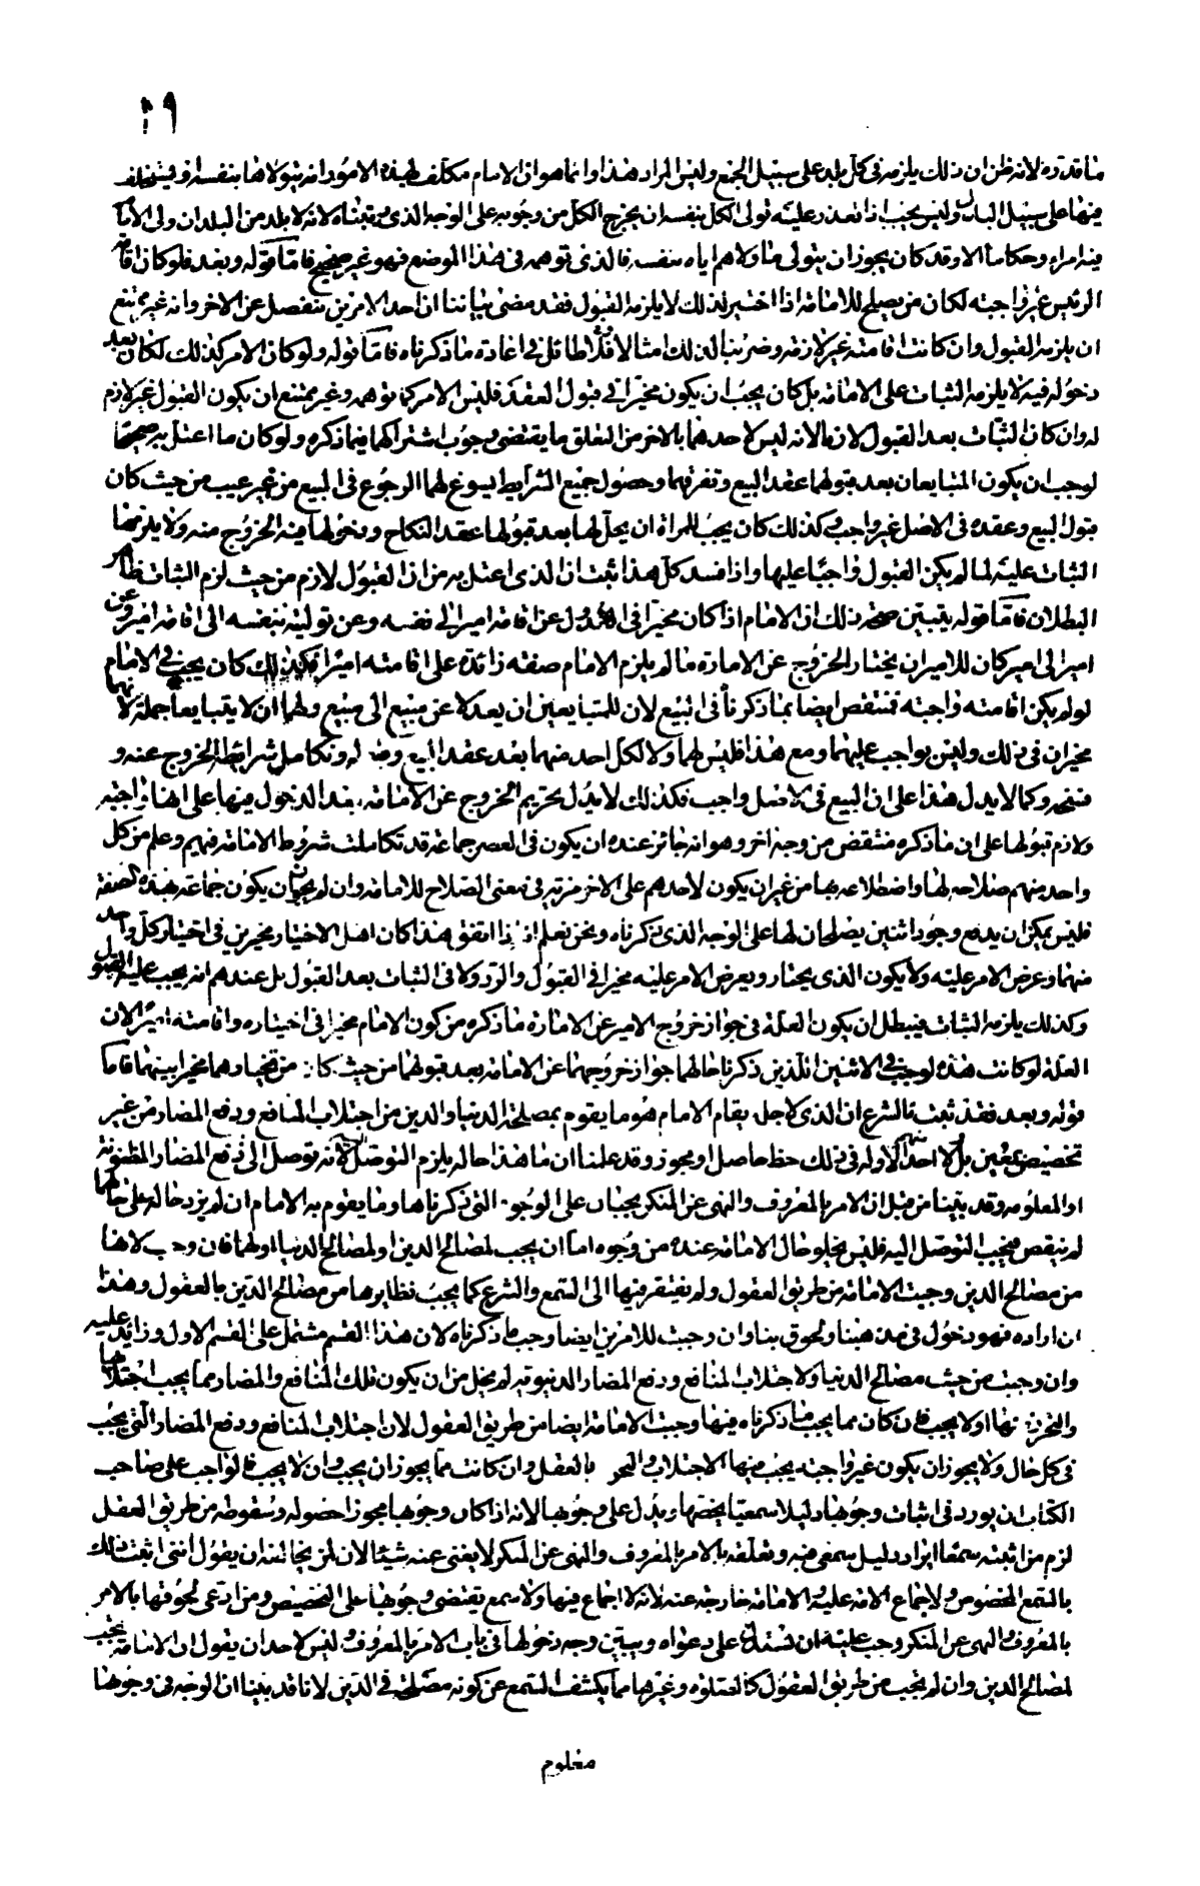 ما قدره لانه ظن ان ذلك يلزمه في كل بلد على سبيل الجمع وليس المراد هذا وانما هو ان الامام مكلف لهذه الامور انه يتولاها بنفسه او يستخلف
فيها على سبيل البدل وليس يجب اذا تعذر عليه تولى الكل بنفسه ان يخرج الكل من وجوبه على الوجه الذى رتبناه لانه لا بلد من البلدان ولى الامام
فيه امراء وحكاما الا وقد كان يجوز ان يتولى ما ولاهم اياه بنفسه فالذى توهمه في هذا الموضع فهو غير صحيح فاما قوله وبعد فلو كان اقامة
الرئيس غير واجبة لكان من يصلح للامامة اذا اختير لذلك لا يلزمه القبول فقد مضى بياننا ان احد الامرين منفصل عن الاخر وانه غير ممتنع
ان يلزمه القبول وان كانت اقامته غير لازمة وضربنا لذلك امثالا فلا طائل في اعادة ما ذكرناه فاما قوله ولو كان الامر كذلك لكان بعد
دخوله فيه لا يلزمه الثبات على الامامة بل كان يجب ان يكون مخيرا في قبول العقد فليس الامر كما توهمه وغير ممتنع ان يكون القبول غير لازم
له وان كان الثبات بعد القبول لازما لانه ليس لاحدهما بالاخر من التعلق ما يقتضى وجوب اشتراكهما فيما ذكره ولو كان ما اعتل به صحيحا
لوجب ان يكون المتبايعان بعد قبولهما عقد البيع وتفرقهما وحصول جميع الشرايط يسوغ لهما الرجوع في المبيع من غير عيب من حيث كان
قبول البيع وعقده في الاصل غير واجب وكذلك كان يجب للمراة ان يحل لها بعد قبولها عقد النكاح ودخولها فيه الخروج منه ولا يلزمها
الثبات عليه لما لم يكن القبول واجبا عليها واذا فسد كل هذا ثبت ان الذى اعتل به من ان القبول لازم من حيث لزم الثبات ظاهر
البطلان فاما قوله يبين صحة ذلك ان الامام اذا كان مخيرا في العدول عن اقامة امير الى نفسه وعن توليته بنفسه الى اقامة امير وعن
امير الى امير كان للامير ان يختار الخروج عن الامارة ما لم يلزم الامام صفته زائدة على اقامته اميرا فكذلك كان يجب في الامام
لو لم يكن اقامته واجبة فمنتقض ايضا بما ذكرناه في البيع لان للمتبايعين ان يعدلا عن مبيع الى مبيع ولهما ان لا يتبايعا جملة لانهما
مخيران في ذلك وليس بواجب عليهما ومع هذا فليس لهما ولا لكل احد منهما بعد عقد البيع وتكامل شرايطه الخروج عنه و
فسخه وكما لا يدل هذا على ان البيع في الاصل واجب فكذلك لا يدل تحريم الخروج عن الامامة بعد الدخول فيها على انها واجبة
ولازم قبولها على ان ما ذكره منتقض من وجه اخر وهو انه جائز عنده ان يكون في العصر جماعة قد تكاملت شروط الامامة فيهم وعلم من كل
واحد منهم صلاحه لها واضطلاعه بها من غير ان يكون لاحدهم على الاخر مزية في معنى الصلاح للامامة وان لم يجب ان يكون جماعة بهذه الصفة
فليس يمكن ان يدفع وجود اثنين يصلحان لها على الوجه الذى ذكرناه ونحن نعلم انه اذا اتفق هذا كان اهل الاختيار مخيرين في اختيار كل واحد
منهما وعرض الامر عليه ولا يكون الذى يختار ويعرض الامر عليه مخيرا في القبول والرد ولا في الثبات بعد القبول بل عندهم انه يجب عليه القبول
وكذلك يلزمه الثبات فيبطل ان يكون العلة في جواز خروج الامير عن الامارة ما ذكره من كون الامام مخيرا في اختياره واقامته اميرا لان
العلة لو كانت هذه لوجب في الاثنين اللذين ذكرنا حالهما جواز خروجهما عن الامامة بعد قبولهما من حيث كان من يختارهما مخيرا بينهما فاما
قوله وبعد فقد ثبت بالشرع ان الذى لاجله يقام الامام هو ما يقوم به بمصلحة الدنيا والدين من اجتلاب المنافع ودفع المضار من غير
تخصيص بمعين بل لا احد منهم الا وله في ذلك حظ حاصل او مجوز وقد علمنا ان ما هذا حاله يلزم التوصل لانه توصل الى دفع المضار المظنونة
او المعلومة وقد بينا من قبل ان الامر بالمعروف والنهى عن المنكر يجبان على الوجوه التى ذكرناها وما يقوم به الامام ان لم يزد حاله على حالهما
لم ينقص فيجب التوصل اليه فليس يخلو حال الامامة عنده من وجوه اما ان يجب لمصالح الدين او لمصالح الدنيا او لهما فان وجب لانها
من مصالح الدين وجبت الامامة من طريق العقول ولم يفتقر فيها الى السمع والشرع كما يجب نظايرها من مصالح الدين بالعقول وهذا
ان اراده فهو دخول في مذهبنا ولحوق بنا وان وجبت للامرين ايضا وجب ما ذكرناه لان هذا القسم مشتمل على القسم الاول وزائد عليه
وان وجبت من حيث مصالح الدنيا ولاجتلاب المنافع ودفع المضار الدنيوية لم يخل من ان يكون تلك المنافع والمضار مما يجب اجتلابها
والتحرز منها او لا يجب فان كان مما يجب ما ذكرناه فيها وجبت الامامة ايضا من طريق العقول لان اجتلاب المنافع ودفع المضار التى يجب
في كل حال ولا يجوز ان يكون غير واجبة يجب فيها الاجتلاب والتحرز بالعقل وان كانت مما يجوز ان يجب وان لا يجب فالواجب على صاحب
الكتاب ان يورد في اثبات وجوبها دليلا سمعيا يخصها ويدل على وجوبها لانه اذا كان وجوبها مجوزا حصوله وسقوطه من طريق العقل
لزم من اثبته سمعا ايراد دليل سمعى فيه وتعلقه بالامر بالمعروف والنهى عن المنكر لا يغنى عنه شيئا لان لمن يخالفه ان يقول اننى اثبت ذلك
بالسمع المخصوص ولاجماع الامة عليه والامامة خارجة عنه لانه لا اجماع فيها ولا سمع يقتضى وجوبها على التخصيص ومن ادعى لحوقها بالامر
بالمعروف والنهى عن المنكر وجب عليه ان يستدل على دعواه ويبين وجه دخولها في باب الامر بالمعروف وليس لاحد ان يقول ان الامامة يجب
لمصالح الدين وان لم يجب من طريق العقول كالصلوة وغيرها مما يكشف السمع عن كونه مصلحة في الدين لانا قد بينا ان الوجه في وجوبها
معلوم